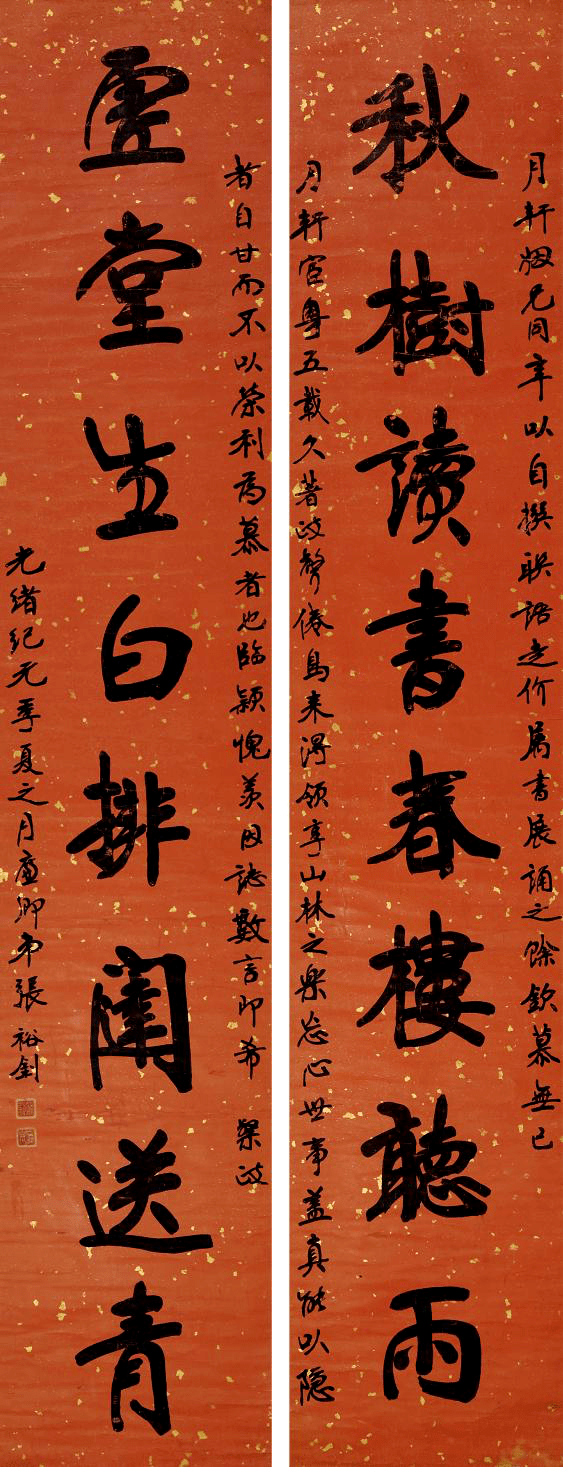 月軒姻兄同年以自撰联语走价属書展誦之餘欽慕無已
秋樹讀書春樓聽雨
月軒宦粤五載久著政聲倦鳥来得領享山林之樂忘心世事盖真能以隐
者自甘而不以榮利為慕者也臨颖愧羡因誌數言即希 榘政
虚堂生白排闥送青
光緒紀元季夏之月廉卿弟張裕釗